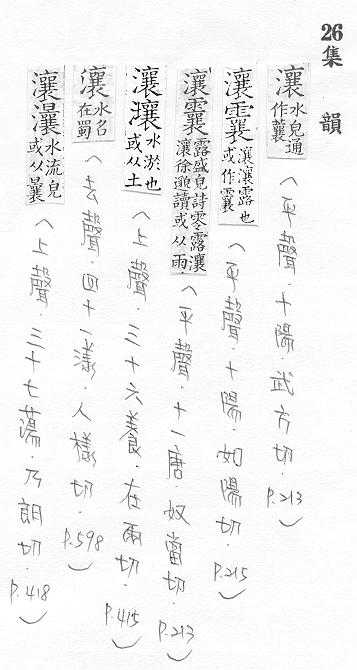 26集 韻
瀼 水皃通作蘘(平聲.十陽.武方切.P.213)
瀼 瀼瀼露也或作(平聲.十陽.如陽切.P.215)
瀼 露盛皃詩零露瀼瀼徐邈讀或从雨(平聲.十一唐 奴當切.P.213)
瀼壤 水淤也或从土(上聲.三十六養.在兩切.P.415)
瀼 水名在蜀(去聲.四十一漾.人樣切.P.598)
瀼灢 水流皃或从曩(上聲.三十七蕩.乃朗切.P.418)